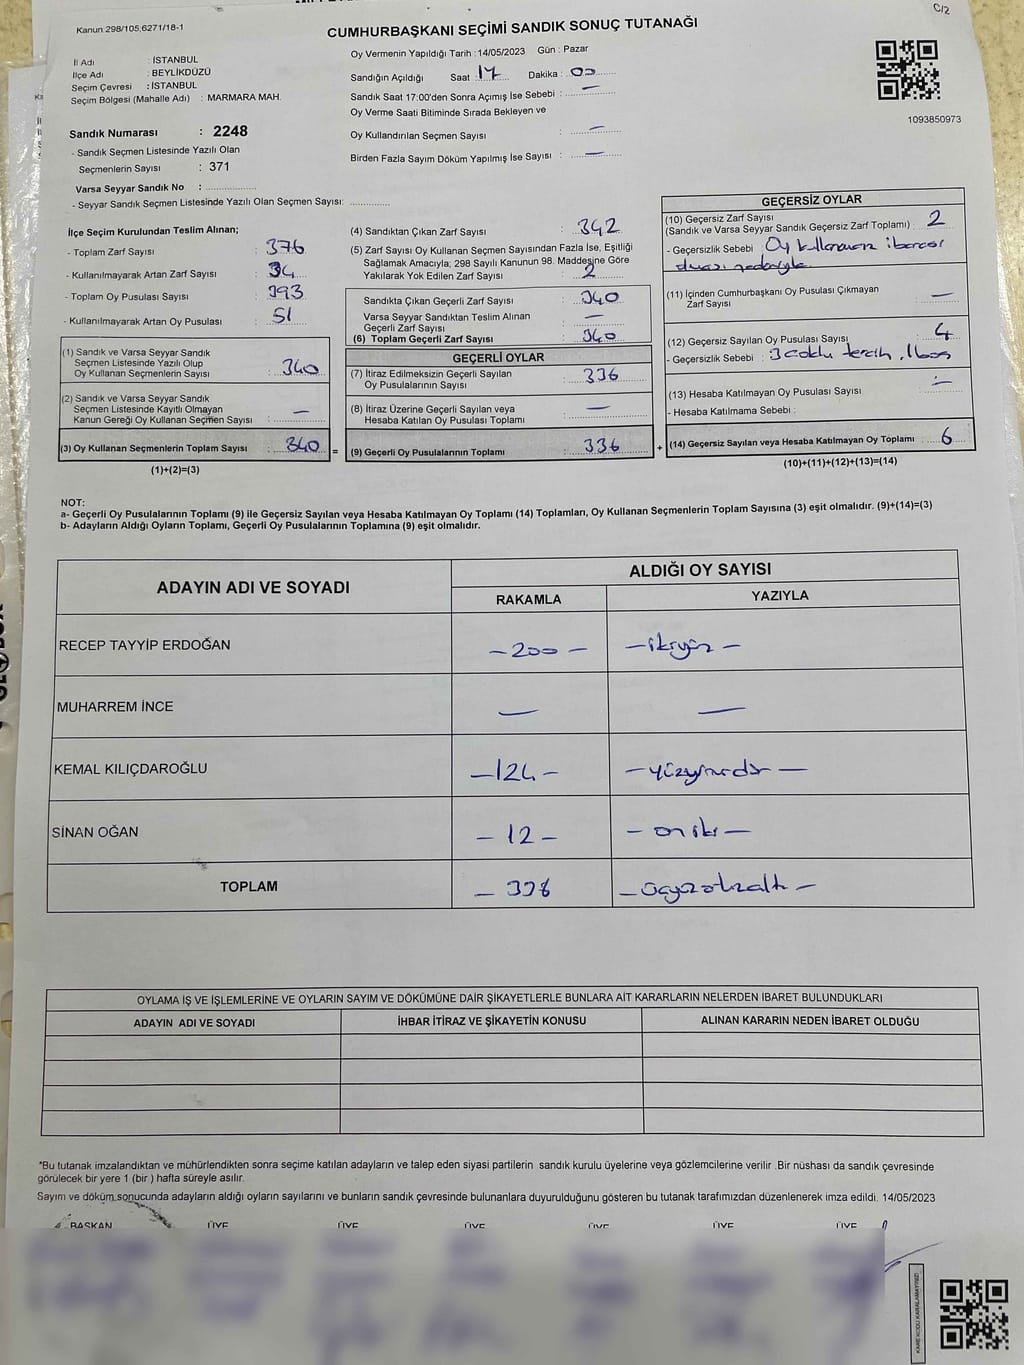 C/2
Kanun 298/105;6271/18-1
CUMHURBAŞKANI SEÇİMİ SANDIK SONUÇ TUTANAĞI
İl Adı : İSTANBUL
İlçe Adı : BEYLİKDÜZÜ
Seçim Çevresi : İSTANBUL
Seçim Bölgesi (Mahalle Adı) : MARMARA MAH.
Oy Vermenin Yapıldığı Tarih : 14/05/2023 Gün : Pazar
Sandığın Açıldığı Saat 17 Dakika : 00
Sandık Saat 17:00'den Sonra Açımış İse Sebebi : —
Oy Verme Saati Bitiminde Sırada Bekleyen ve
Oy Kullandırılan Seçmen Sayısı : —
Birden Fazla Sayım Döküm Yapılmış İse Sayısı : —
1093850973
Sandık Numarası : 2248
- Sandık Seçmen Listesinde Yazılı Olan
Seçmenlerin Sayısı : 371
Varsa Seyyar Sandık No :
- Seyyar Sandık Seçmen Listesinde Yazılı Olan Seçmen Sayısı:
İlçe Seçim Kurulundan Teslim Alınan;
- Toplam Zarf Sayısı : 376
- Kullanılmayarak Artan Zarf Sayısı : 34
- Toplam Oy Pusulası Sayısı : 393
- Kullanılmayarak Artan Oy Pusulası : 51
(1) Sandık ve Varsa Seyyar Sandık
Seçmen Listesinde Yazılı Olup
Oy Kullanan Seçmenlerin Sayısı : 340
(2) Sandık ve Varsa Seyyar Sandık
Seçmen Listesinde Kayıtlı Olmayan
Kanun Gereği Oy Kullanan Seçmen Sayısı : —
(3) Oy Kullanan Seçmenlerin Toplam Sayısı : 340 =
(1)+(2)=(3)
(4) Sandıktan Çıkan Zarf Sayısı : 342
(5) Zarf Sayısı Oy Kullanan Seçmen Sayısından Fazla İse, Eşitliği
Sağlamak Amacıyla; 298 Sayılı Kanunun 98. Maddesine Göre
Yakılarak Yok Edilen Zarf Sayısı : 2
Sandıkta Çıkan Geçerli Zarf Sayısı : 340
Varsa Seyyar Sandıktan Teslim Alınan
Geçerli Zarf Sayısı : —
(6) Toplam Geçerli Zarf Sayısı : 340
GEÇERLİ OYLAR
(7) İtiraz Edilmeksizin Geçerli Sayılan
Oy Pusulalarının Sayısı : 336
(8) İtiraz Üzerine Geçerli Sayılan veya
Hesaba Katılan Oy Pusulası Toplamı : —
(9) Geçerli Oy Pusulalarının Toplamı : 336 +
GEÇERSİZ OYLAR
(10) Geçersiz Zarf Sayısı
(Sandık ve Varsa Seyyar Sandık Geçersiz Zarf Toplamı) : 2
- Geçersizlik Sebebi : Oy
(11) İçinden Cumhurbaşkanı Oy Pusulası Çıkmayan
Zarf Sayısı : —
(12) Geçersiz Sayılan Oy Pusulası Sayısı : 4
- Geçersizlik Sebebi : 3 çoklu tercih, 1 boş
(13) Hesaba Katılmayan Oy Pusulası Sayısı : —
- Hesaba Katılmama Sebebi :
(14) Geçersiz Sayılan veya Hesaba Katılmayan Oy Toplamı : 6
(10)+(11)+(12)+(13)=(14)
NOT:
a- Geçerli Oy Pusulalarının Toplamı (9) ile Geçersiz Sayılan veya Hesaba Katılmayan Oy Toplamı (14) Toplamları, Oy Kullanan Seçmenlerin Toplam Sayısına (3) eşit olmalıdır. (9)+(14)=(3)
b- Adayların Aldığı Oyların Toplamı, Geçerli Oy Pusulalarının Toplamına (9) eşit olmalıdır.
ADAYIN ADI VE SOYADI ALDIĞI OY SAYISI
RAKAMLA YAZIYLA
RECEP TAYYİP ERDOĞAN — 200 — — ikiyüz —
MUHARREM İNCE — —
KEMAL KILIÇDAROĞLU — 124 — — yüzyirmidör —
SİNAN OĞAN — 12 — — on iki —
TOPLAM — 336 — — üçyüzotuzaltı —
OYLAMA İŞ VE İŞLEMLERİNE VE OYLARIN SAYIM VE DÖKÜMÜNE DAİR ŞİKAYETLERLE BUNLARA AİT KARARLARIN NELERDEN İBARET BULUNDUKLARI
ADAYIN ADI VE SOYADI İHBAR İTİRAZ VE ŞİKAYETİN KONUSU ALINAN KARARIN NEDEN İBARET OLDUĞU
*Bu tutanak imzalandıktan ve mühürlendikten sonra seçime katılan adayların ve talep eden siyasi partilerin sandık kurulu üyelerine veya gözlemcilerine verilir .Bir nüshası da sandık çevresinde
görülecek bir yere 1 (bir ) hafta süreyle asılır.
Sayım ve döküm sonucunda adayların aldığı oyların sayılarını ve bunların sandık çevresinde bulunanlara duyurulduğunu gösteren bu tutanak tarafımızdan düzenlenerek imza edildi. 14/05/2023
BAŞKAN ÜYE ÜYE ÜYE ÜYE ÜYE ÜYE
KARE KODU KARALAMAYINIZ!